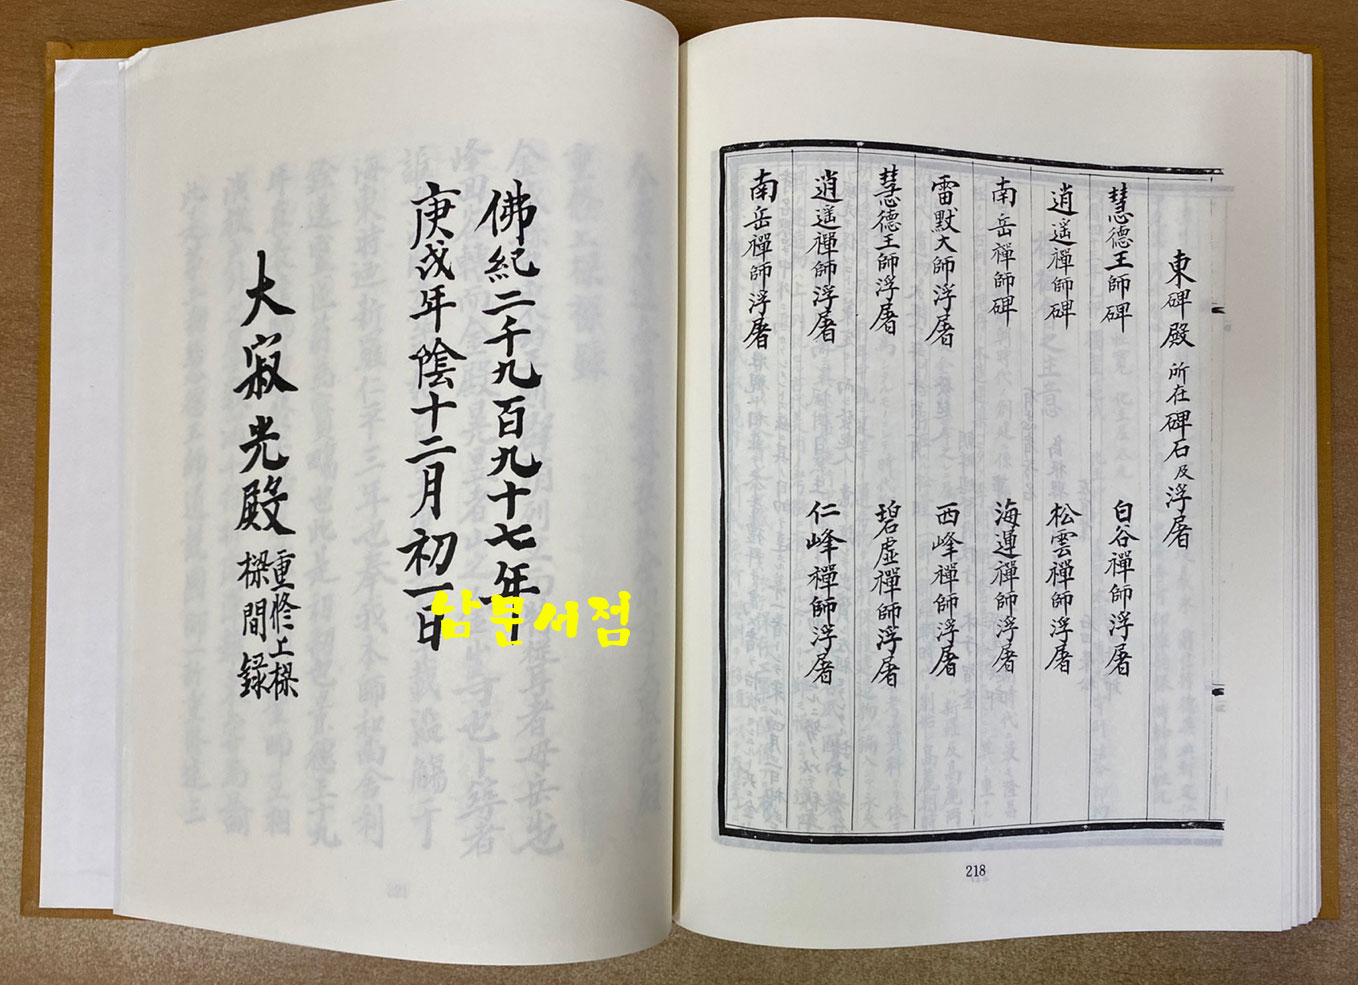 東碑殿 所在碑石及浮屠
慧德王師碑 白谷禪師浮屠
逍遥禪師碑 松雲禪師浮屠
南岳禪師碑 海運禪師浮屠
雷默大師浮屠 西峰禪師浮屠
慧德王師浮屠 碧虛禪師浮屠
逍遥禪師浮屠 仁峰禪師浮屠
南岳禪師浮屠
218
佛紀二千九百九十七年
庚戌年陰十二月初一日
大寂光殿 重修上樑
樑間錄
남문서점